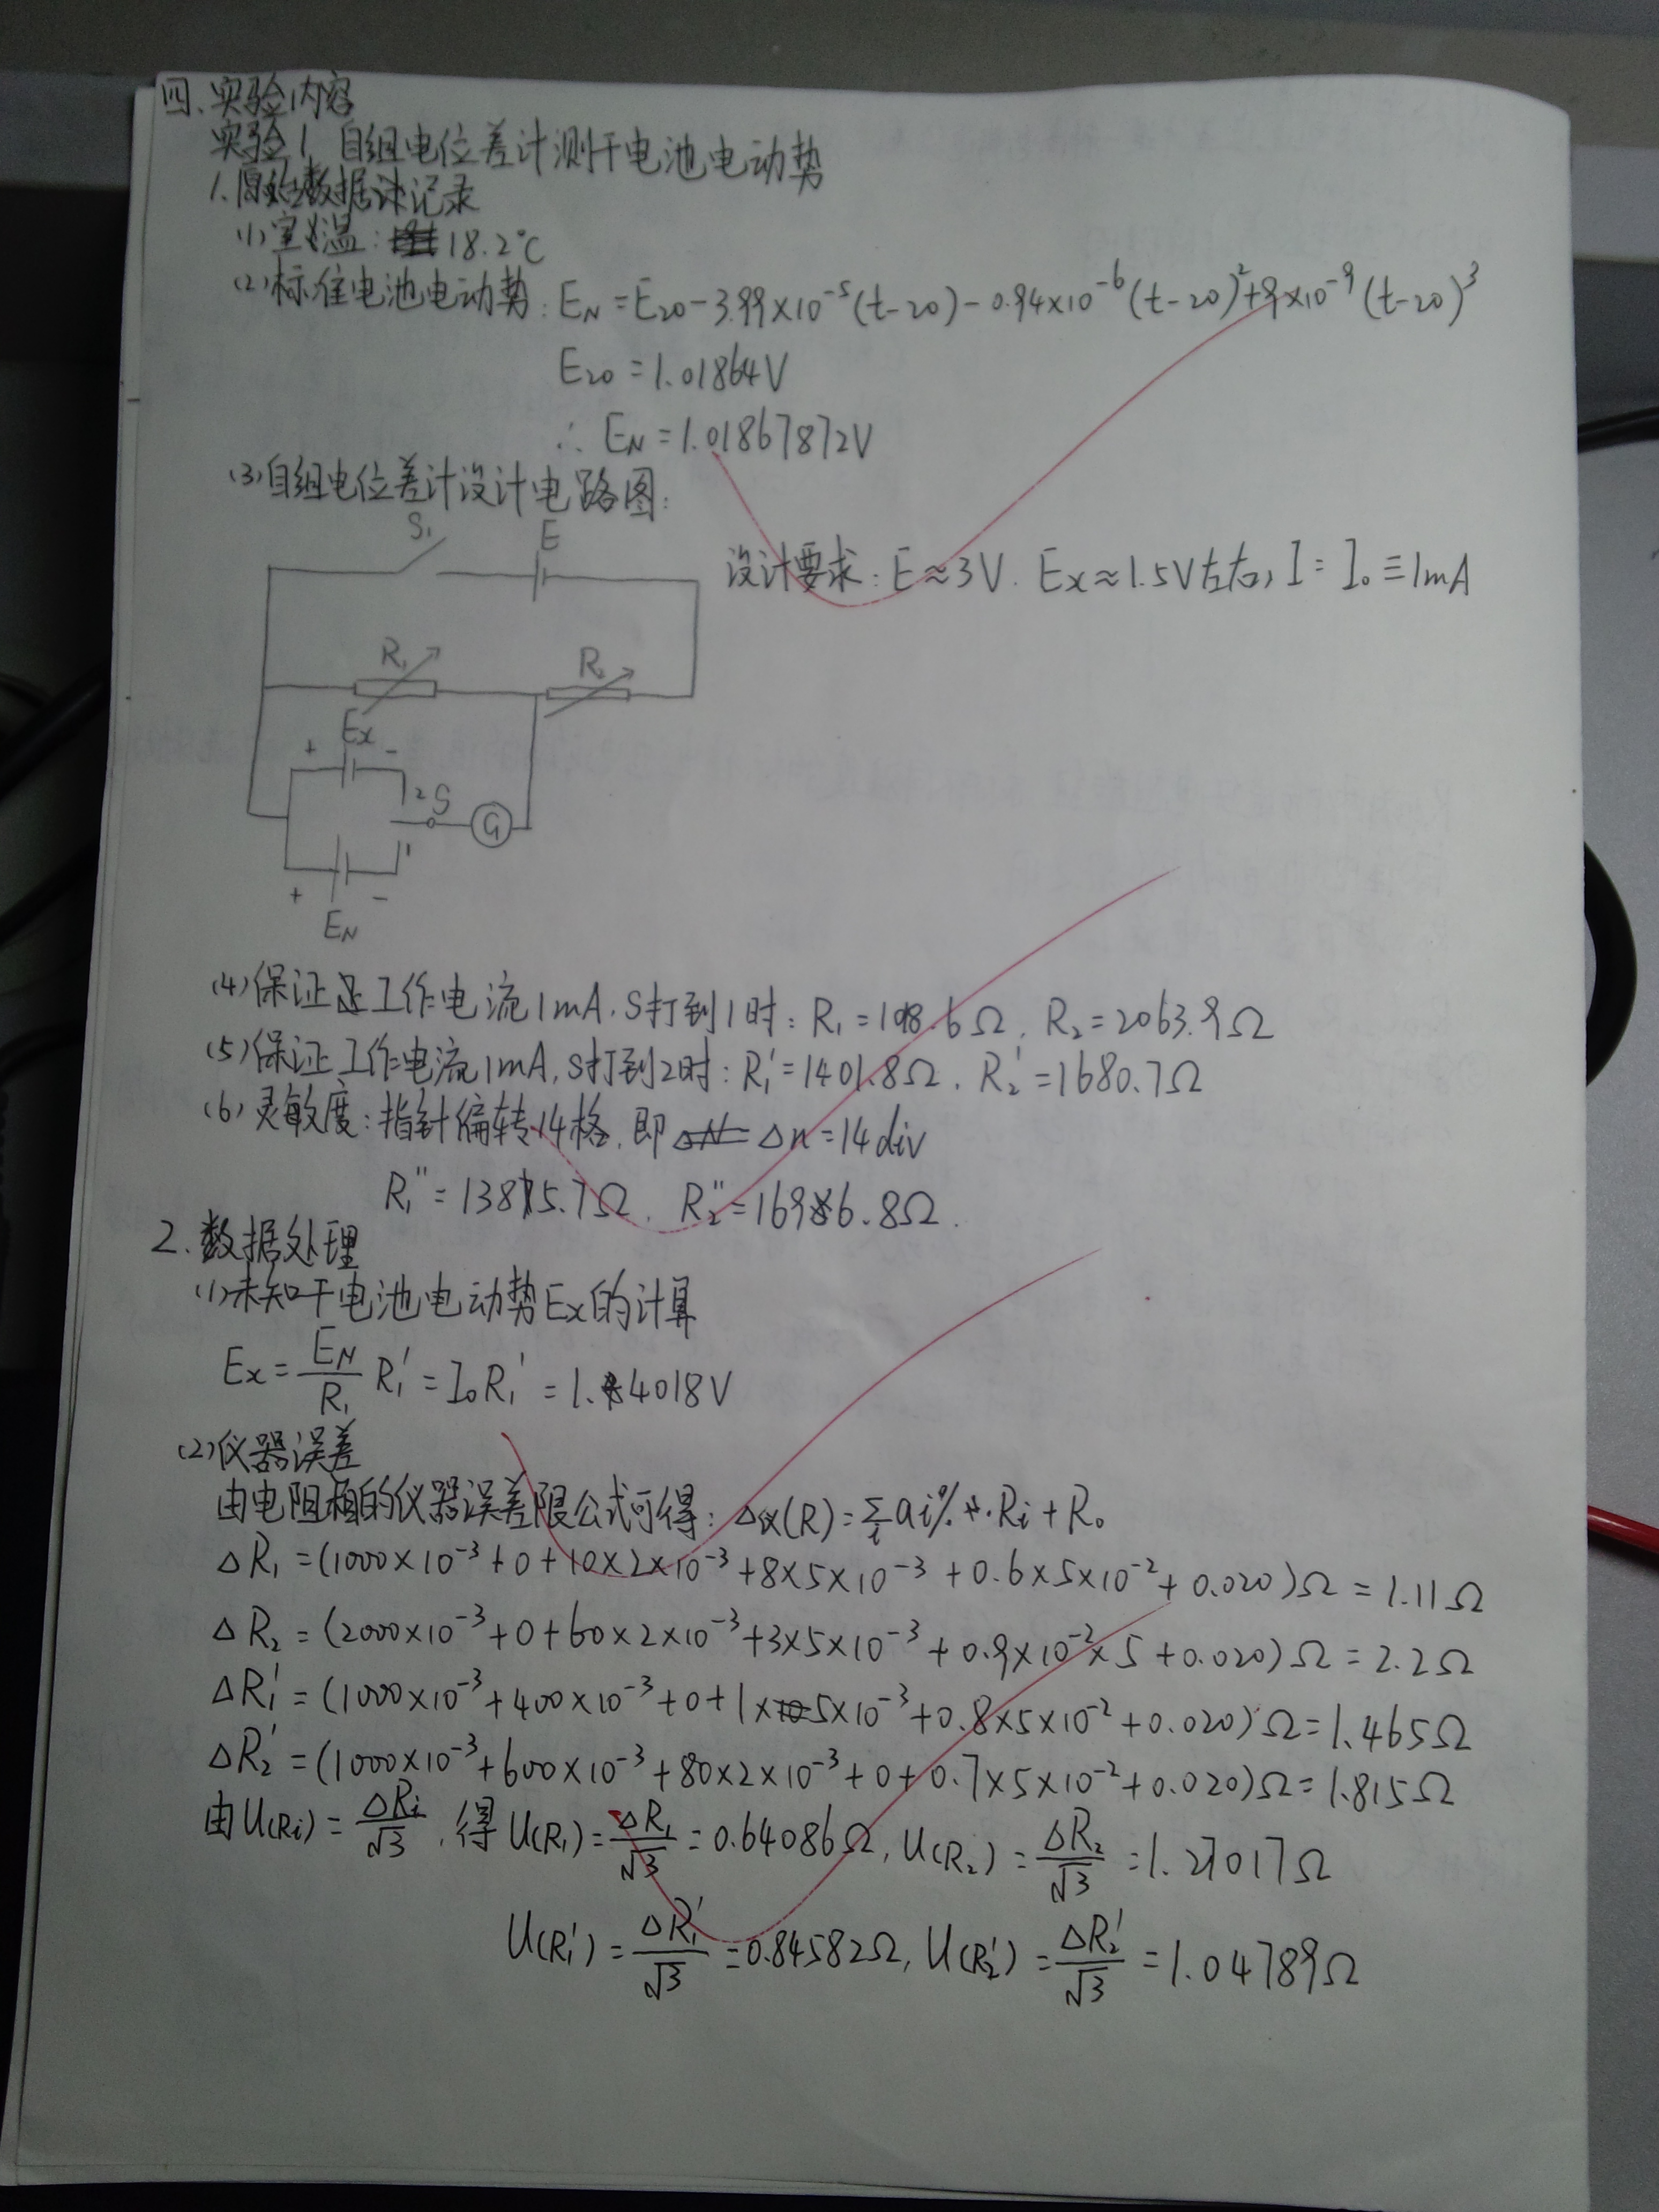 四、实验内容
实验1. 自组电位差计测干电池电动势
1. 原始数据记录
(1) 室温: 18.2°C
(2) 标准电池电动势: E_N = E_20 - 3.99×10^-5 (t-20) - 0.94×10^-6 (t-20)^2 + 9×10^-9 (t-20)^3
E_20 = 1.01864V
∴ E_N = 1.01867872V
(3) 自组电位差计设计电路图:
S_1 E
设计要求: E≈3V. Ex≈1.5V左右, I = I_0 ≡ 1mA
R_1 R_2
Ex
+ -
2 S
G
1
+ -
E_N
(4) 保证工作电流1mA, S打到1时: R_1 = 1018.6Ω, R_2 = 2063.9Ω
(5) 保证工作电流1mA, S打到2时: R_1' = 1401.8Ω, R_2' = 1680.7Ω
(6) 灵敏度: 指针偏转14格, 即 Δn = 14div
R_1'' = 1385.7Ω. R_2'' = 1696.8Ω.
2. 数据处理
(1) 未知干电池电动势Ex的计算
Ex = E_N/R_1 R_1' = I_0R_1' = 1.4018V
(2) 仪器误差
由电阻箱的仪器误差限公式可得: Δ仪(R) = Σ_i ai%·Ri + R_0
ΔR_1 = (1000×10^-3 + 0 + 10×2×10^-3 + 8×5×10^-3 + 0.6×5×10^-2 + 0.020)Ω = 1.11Ω
ΔR_2 = (2000×10^-3 + 0 + 60×2×10^-3 + 3×5×10^-3 + 0.9×10^-2×5 + 0.020)Ω = 2.2Ω
ΔR_1' = (1000×10^-3 + 400×10^-3 + 0 + 1×5×10^-3 + 0.8×5×10^-2 + 0.020)Ω = 1.465Ω
ΔR_2' = (1000×10^-3 + 600×10^-3 + 80×2×10^-3 + 0 + 0.7×5×10^-2 + 0.020)Ω = 1.815Ω
由U(Ri) = ΔRi/√3, 得 U(R_1) = ΔR_1/√3 = 0.64086Ω, U(R_2) = ΔR_2/√3 = 1.27017Ω
U(R_1') = ΔR_1'/√3 = 0.84582Ω, U(R_2') = ΔR_2'/√3 = 1.04789Ω